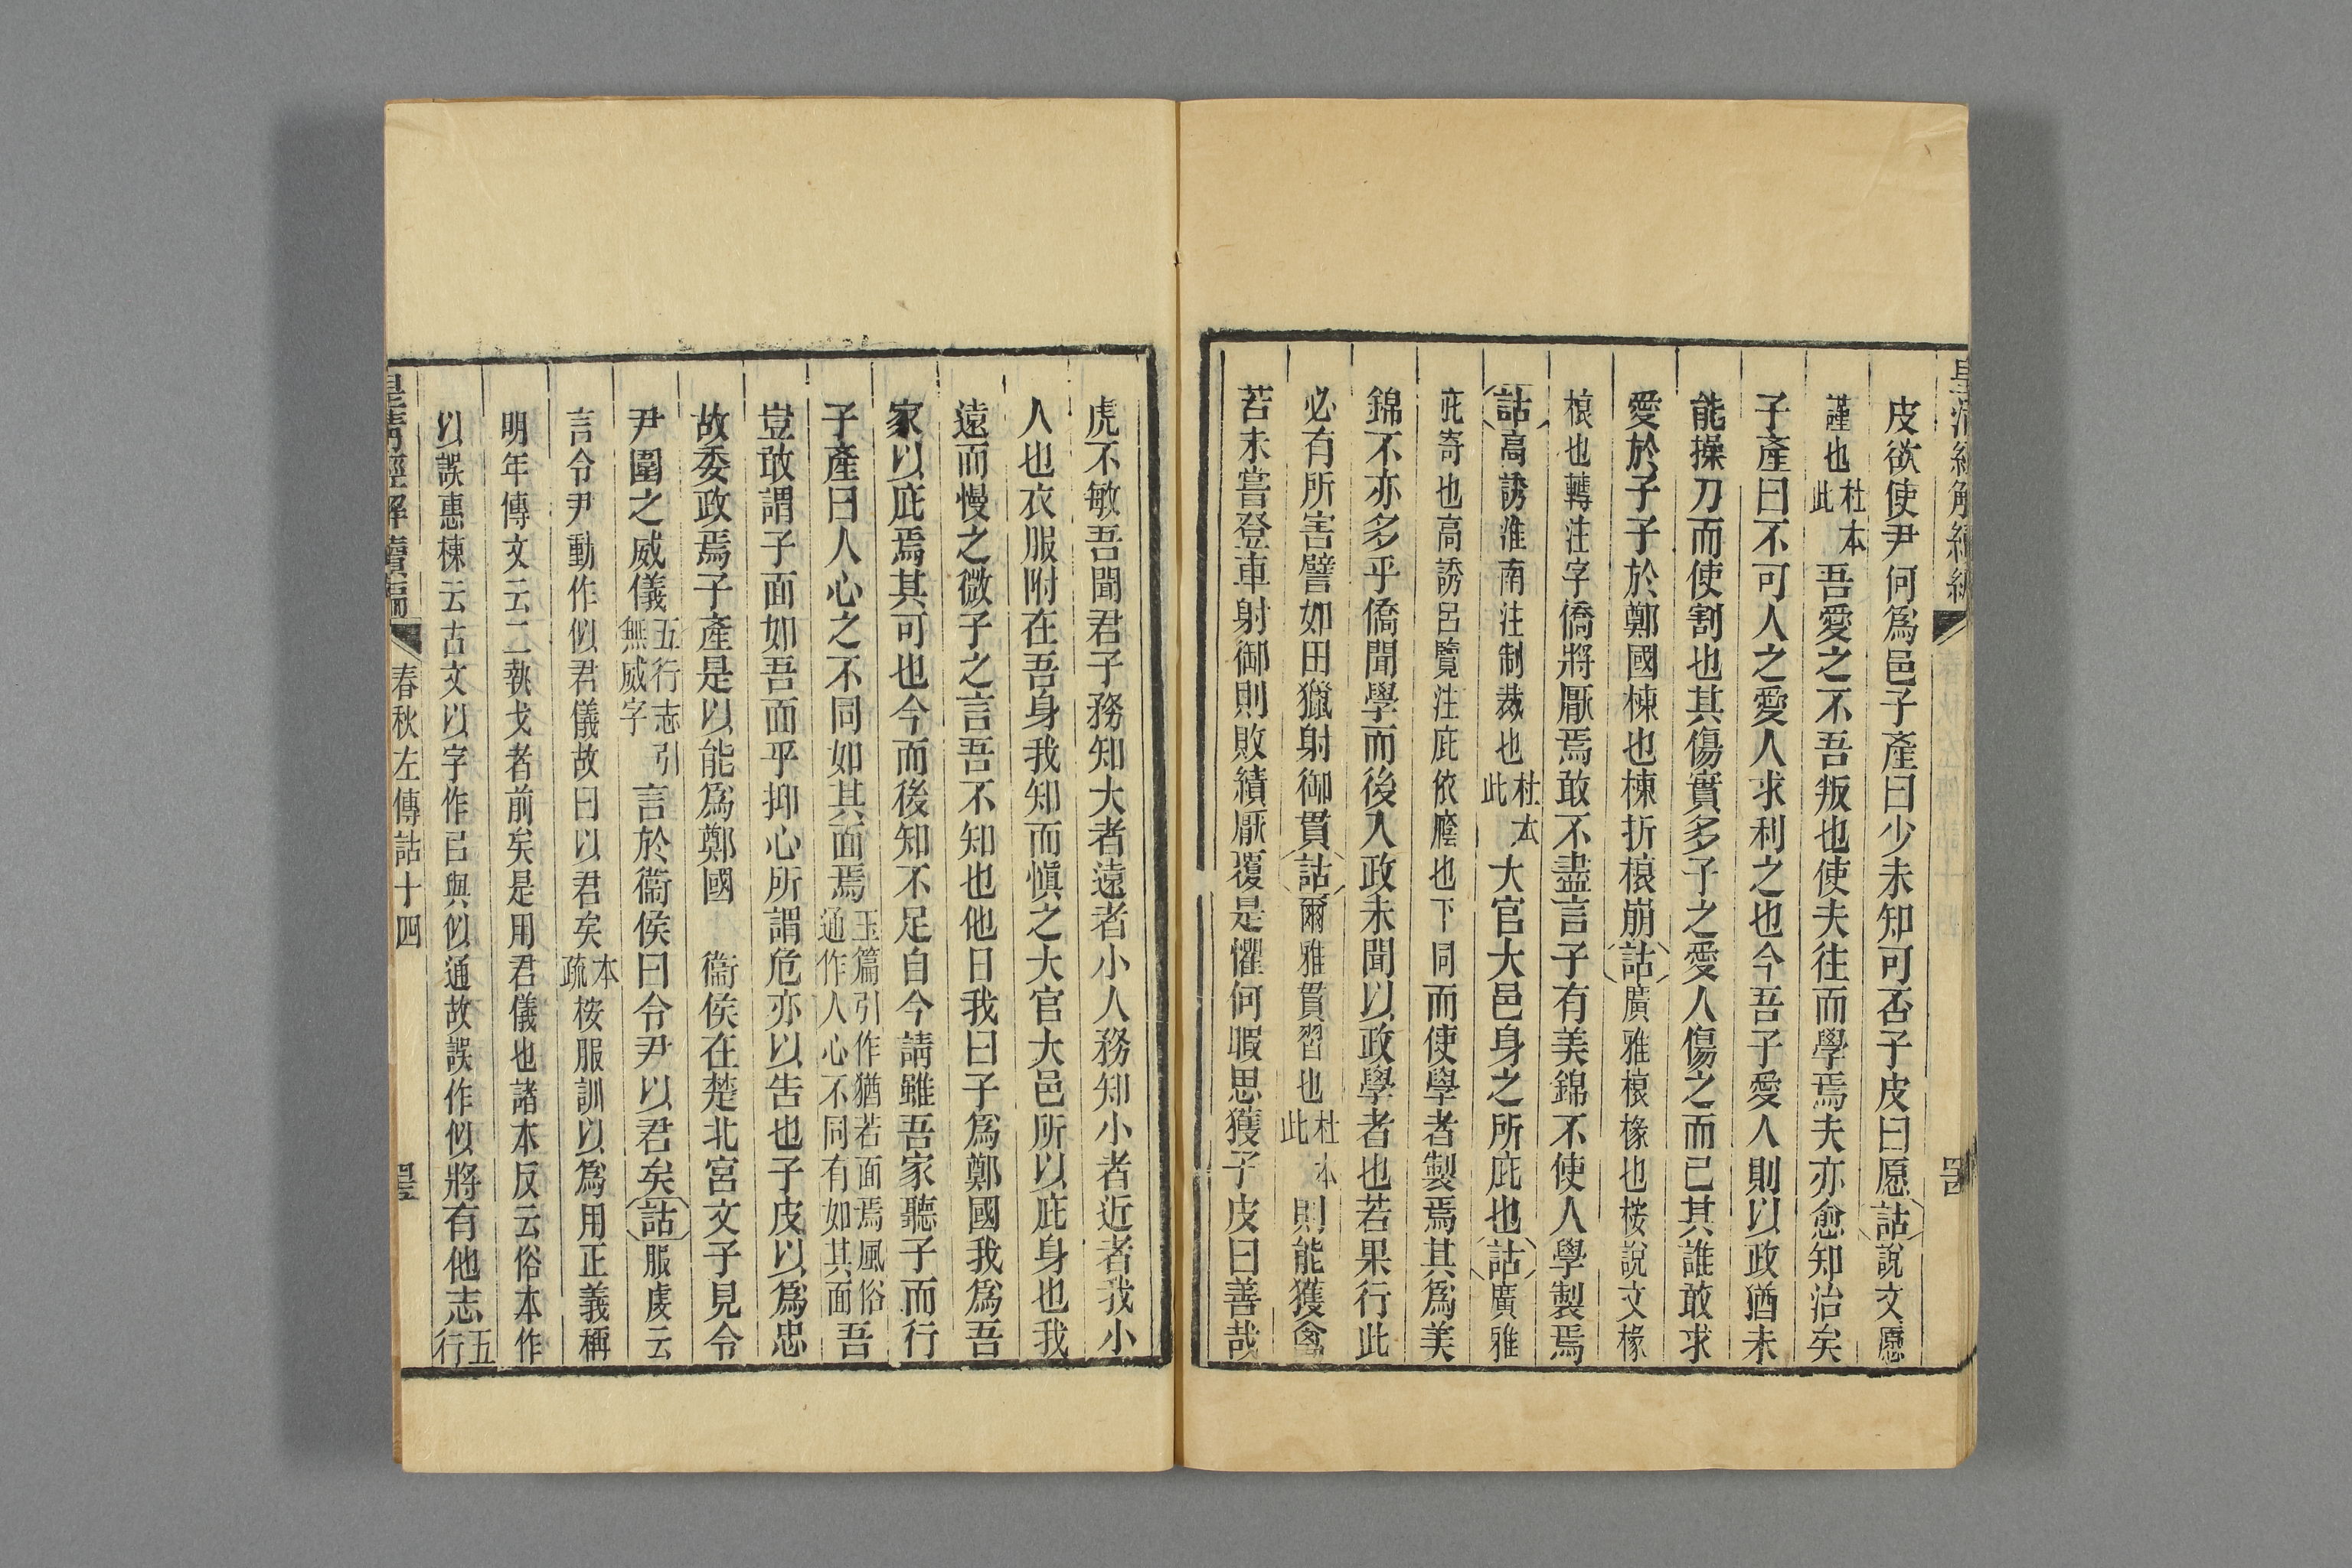 皮欲使尹何爲邑子產曰少未知可否子皮曰愿詁說文愿
謹也杜本此吾愛之不吾叛也使夫往而學焉夫亦愈知治矣
子產曰不可人之愛人求利之也今吾子愛人則以政猶未
能操刀而使割也其傷實多子之愛人傷之而已其誰敢求
愛於子子於鄭國棟也棟折榱崩詁廣雅榱椽也桉說文椽
榱也轉注字僑將厭焉敢不盡言子有美錦不使人學製焉
詁高誘淮南注制裁也杜本此大官大邑身之所庇也詁廣雅
庇寄也高誘呂覽注庇依廕也下同而使學者製焉其爲美
錦不亦多乎僑聞學而後入政未聞以政學者也若果行此
必有所害譬如田獵射御貫詁爾雅貫習也杜本此則能獲禽
若未嘗登車射御則敗績厭覆是懼何暇思獲子皮曰善哉
虎不敏吾聞君子務知大者遠者小人務知小者近者我小
人也衣服附在吾身我知而慎之大官大邑所以庇身也我
遠而慢之微子之言吾不知也他日我曰子爲鄭國我爲吾
家以庇焉其可也今而後知不足自今請雖吾家聽子而行
子產曰人心之不同如其面焉玉篇引作猶若面焉風俗通作人心不同有如其面吾
豈敢謂子面如吾面乎抑心所謂危亦以告也子皮以爲忠
故委政焉子產是以能爲鄭國 衞侯在楚北宮文子見令
尹圍之威儀五行志引無威字言於衞侯曰令尹以君矣詁服虔云
言令尹動作似君儀故曰以君矣本疏桉服訓以爲用正義稱
明年傳文云二執戈者前矣是用君儀也諸本反云俗本作
以誤惠棟云古文以字作㠯與似通故誤作似將有他志五行
皇清經解續編 春秋左傳詁十四